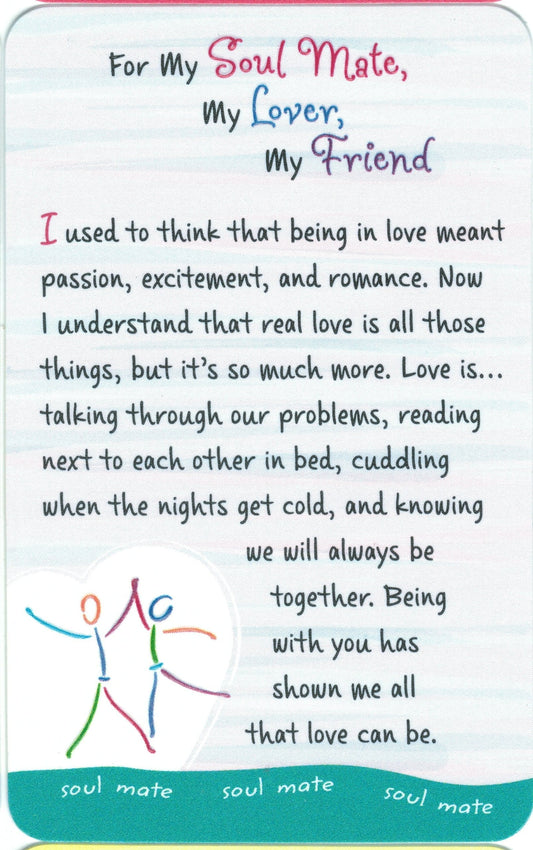 For My Soul Mate,
My Lover,
My Friend
I used to think that being in love meant
passion, excitement, and romance. Now
I understand that real love is all those
things, but it's so much more. Love is...
talking through our problems, reading
next to each other in bed, cuddling
when the nights get cold, and knowing
we will always be
together. Being
with you has
shown me all
that love can be.
soul mate soul mate soul mate